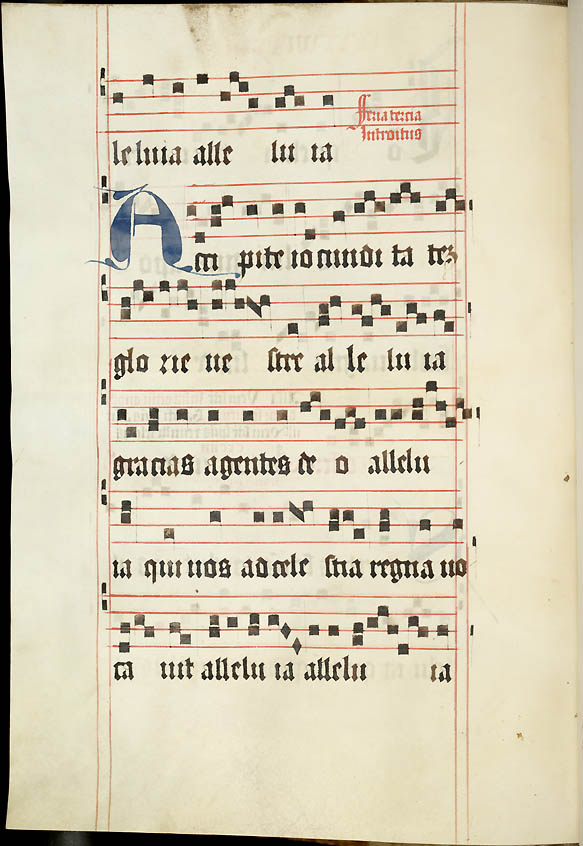 leluia alle lu ia
Feria tercia
Introitus
Acci pite iocundi ta tez
glo rie ue stre al le lu ia
gracias agentes de o allelu
ia qui uos ad cele stia regna uo
ca uit allelu ia allelu ia